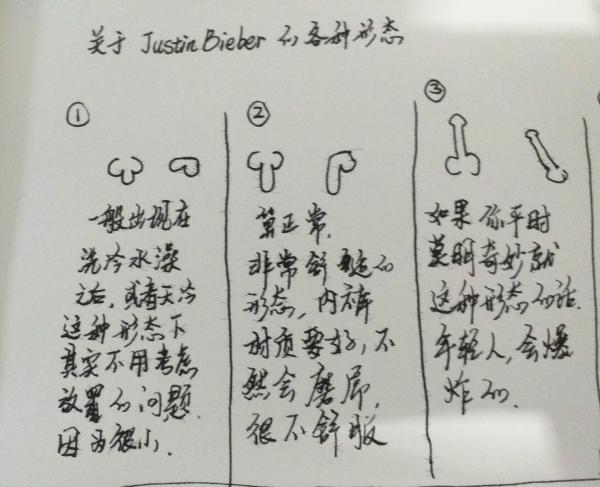 关于 Justin Bieber 的各种形态
①
一般出现在
洗冷水澡
之后,或者天冷
这种形态下
其实不用考虑
放置的问题.
因为很小.
②
算正常.
非常舒适的
形态,内裤
材质要好,不
然会磨屌,
很不舒服
③
如果你平时
莫明奇妙就
这种形态的话.
年轻人,会爆
炸的.